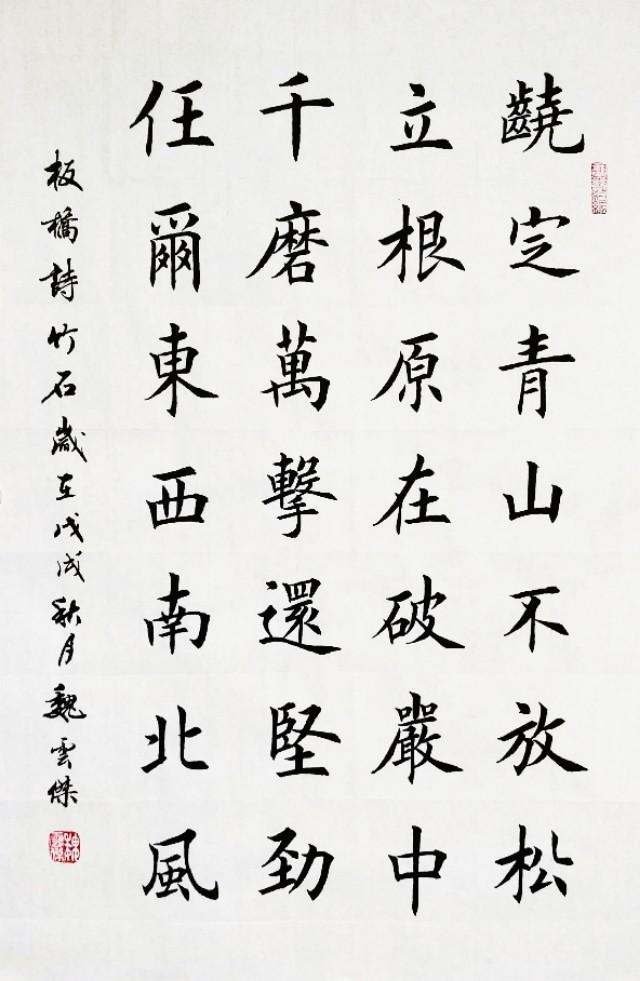 定青山不放松
立根原在破巖中
千磨萬擊還堅勁
任爾東西南北風
板橋詩竹石歲在戊戌秋月魏雲傑